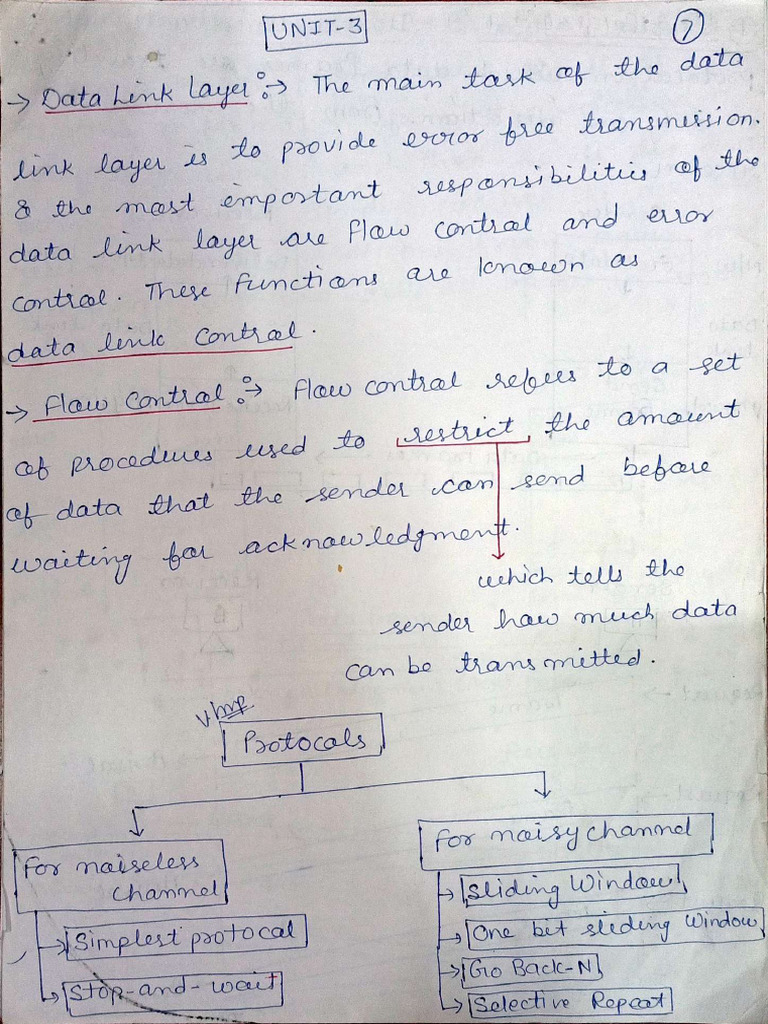 UNIT-3
7
→ Data Link Layer :→ The main task of the data
link layer is to provide error free transmission.
& the most important responsibilities of the
data link layer are flow control and error
control. These functions are known as
data link control.
→ Flow Control :→ flow control refers to a set
of procedures used to restrict the amount
of data that the sender can send before
waiting for acknowledgment.
which tells the
sender how much data
can be transmitted.
v Imp
Protocals
for noiseless
channel
Simplest protocal
Stop-and-wait
for noisy channel
Sliding Window
One bit sliding Window
Go Back-N
Selective Repeat